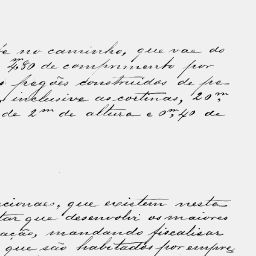 e no caminho, que vae do
4,m30 de comprimento por
pegões construidos de pe-
inclusive as cortinas, 20m,
de 2m de altura e 0m,40 de
cionaes, que existem nesta
tar que desenvolvi os maiores
ação, mandando fiscalisar
que são habitados por empre